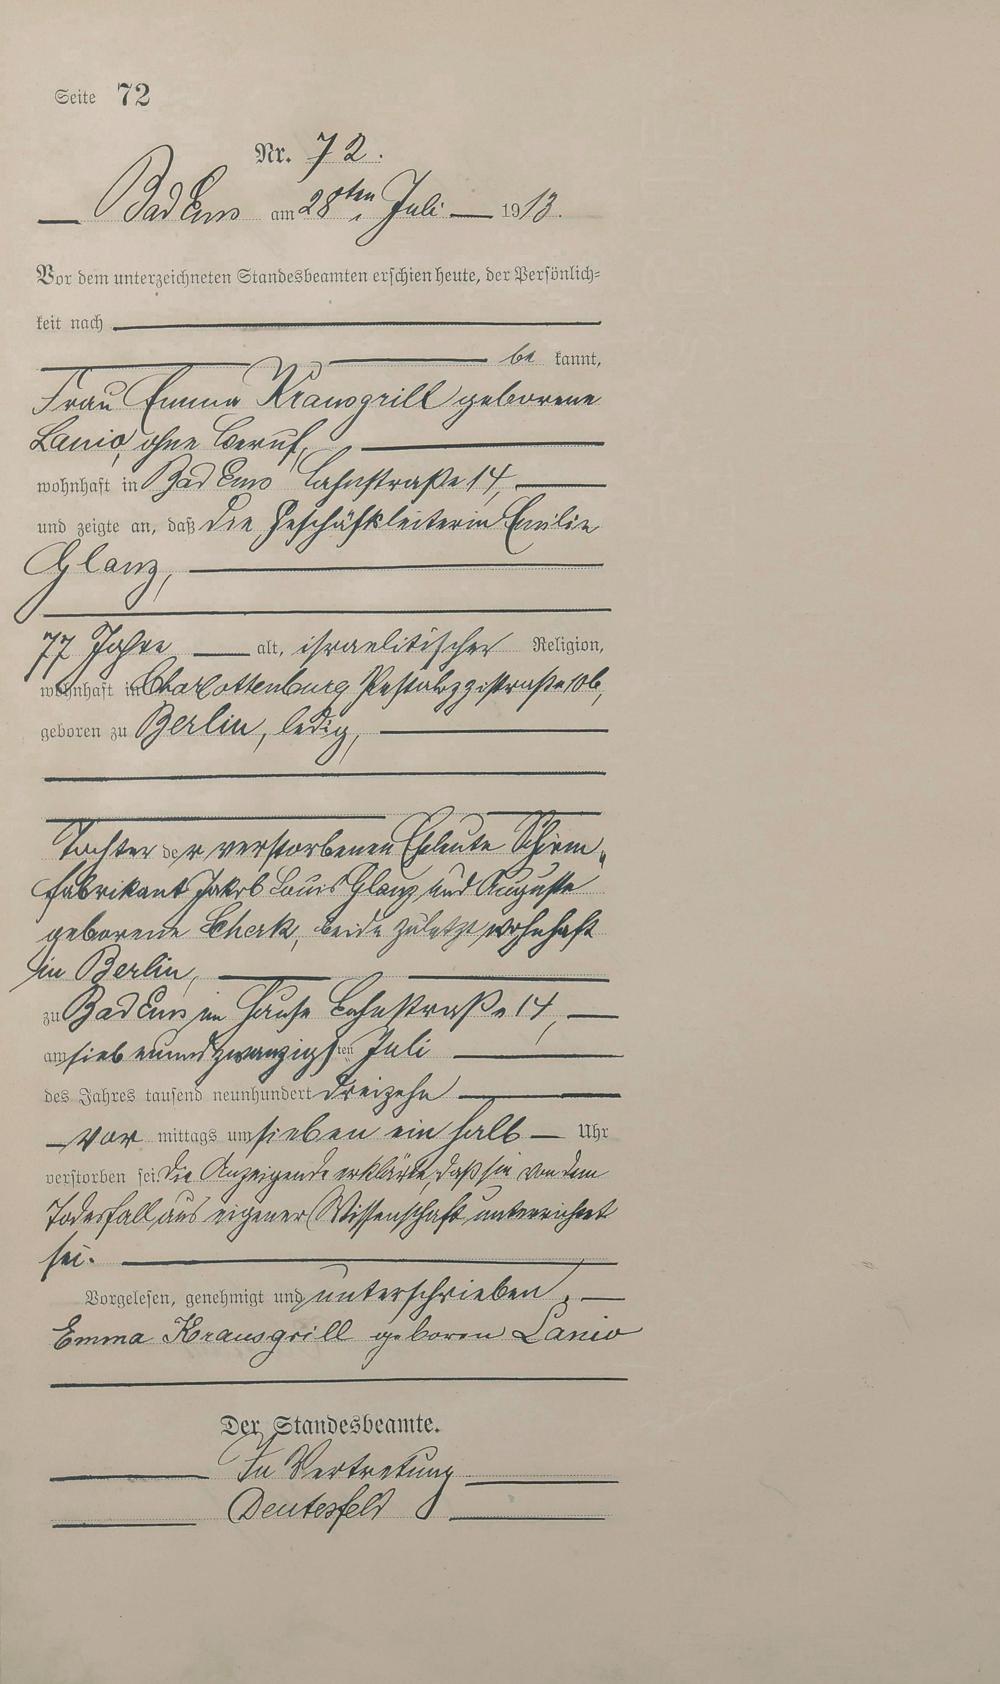 Seite 72
Nr. 72.
Bad Ems am 28ten Juli 1913.
Vor dem unterzeichneten Standesbeamten erschien heute, der Persönlich-
keit nach
be kannt,
Frau Emma Krausgrill geborene
Lanio, ohne Beruf,
wohnhaft in Bad Ems Lahnstraße 14,
und zeigte an, daß die Geschäftsleiterin Emilie
Glanz,
77 Jahre alt, israelitischer Religion,
wohnhaft in Charlottenburg Pestalozzistraße 10b,
geboren zu Berlin, ledig,
Tochter der verstorbenen Eheleute Schirm-
fabrikant Jakob Louis Glanz und Auguste
geborene Cherk, beide zuletzt wohnhaft
in Berlin,
zu Bad Ems im Hause Lahnstraße 14,
am siebenundzwanzigsten Juli
des Jahres tausend neunhundert dreizehn
Vor mittags um sieben ein halb Uhr
verstorben sei. Die Anzeigende erklärte, daß sie von dem
Todesfall aus eigener Wissenschaft unterrichtet
sei.
Vorgelesen, genehmigt und unterschrieben.
Emma Krausgrill geboren Lanio
Der Standesbeamte.
In Vertretung
Deutesfeld